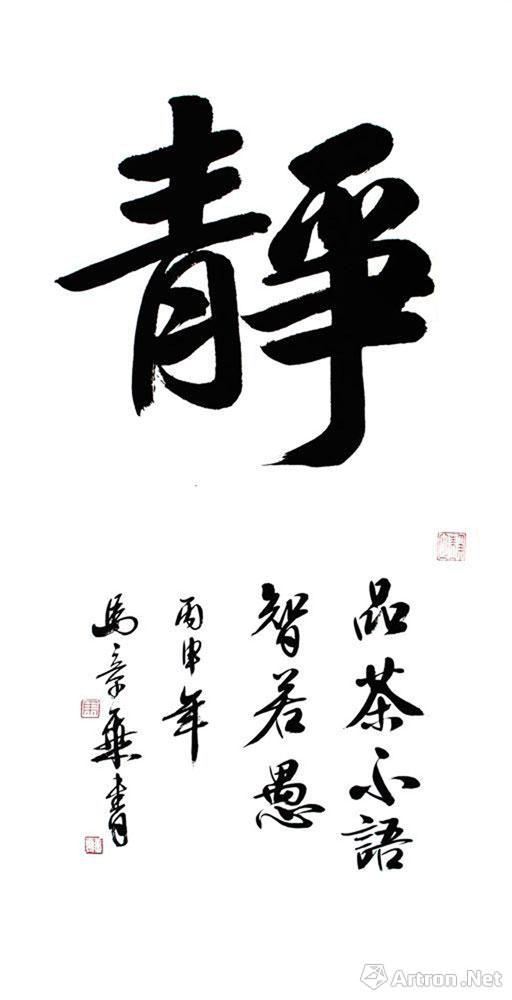 靜
品茶不語
智若愚
丙申年
馬章乘書
Artron.Net